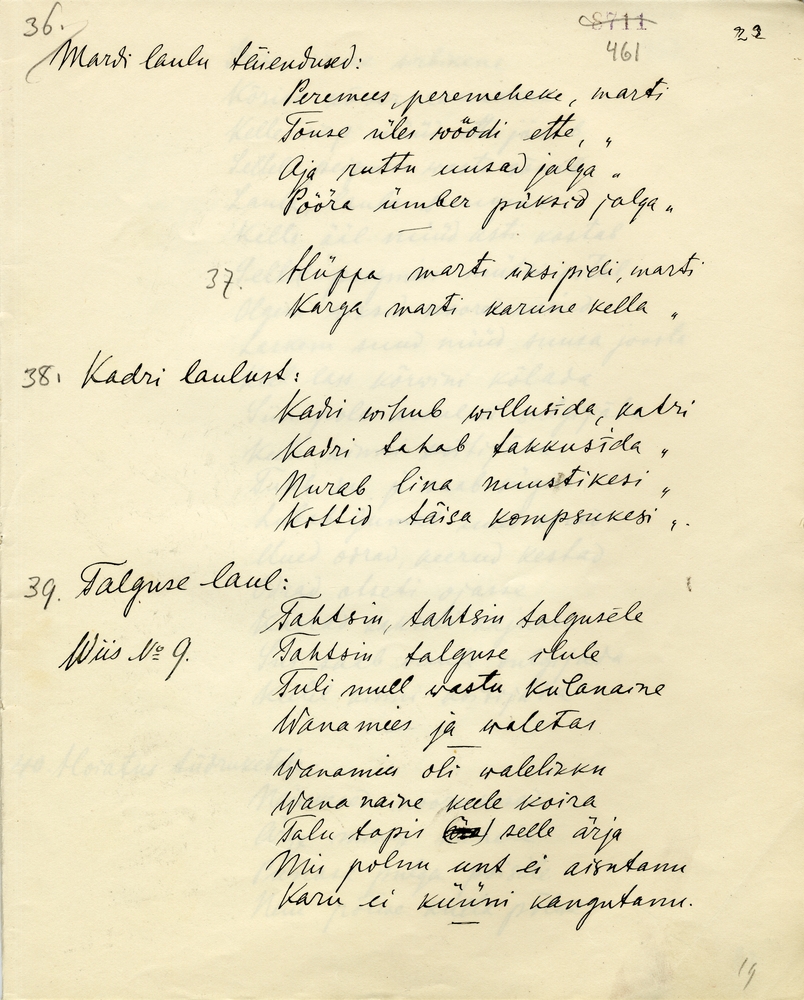 36.
8711
461
23
Mardi laulu täiendused:
Peremees, peremeheke, marti
Tõuse üles wöödi ette, "
Aja ruttu uusad jalga "
Pööra ümber püksid jalga "
37. Hüppa marti üksipidi, marti
Karga marti karune kella "
38. Kadri laulust:
Kadri wihub willusida, katri
Kadri tahab takkusida "
Nurab lina nuustikesi "
Kottid täisa kompsukesi ".
39. Talguse laul:
Tahtsin, tahtsin talgusele
Wiis No 9.
Tahtsin talguse ilule
Tuli mull wastu külanaine
Wanamees ja waletas
Wanamees oli walelikku
Wana naine keele koira
Talu tapis selle ärja
Mis polnu unt ei aisutanu
Karu ei küüni kangutanu.
19